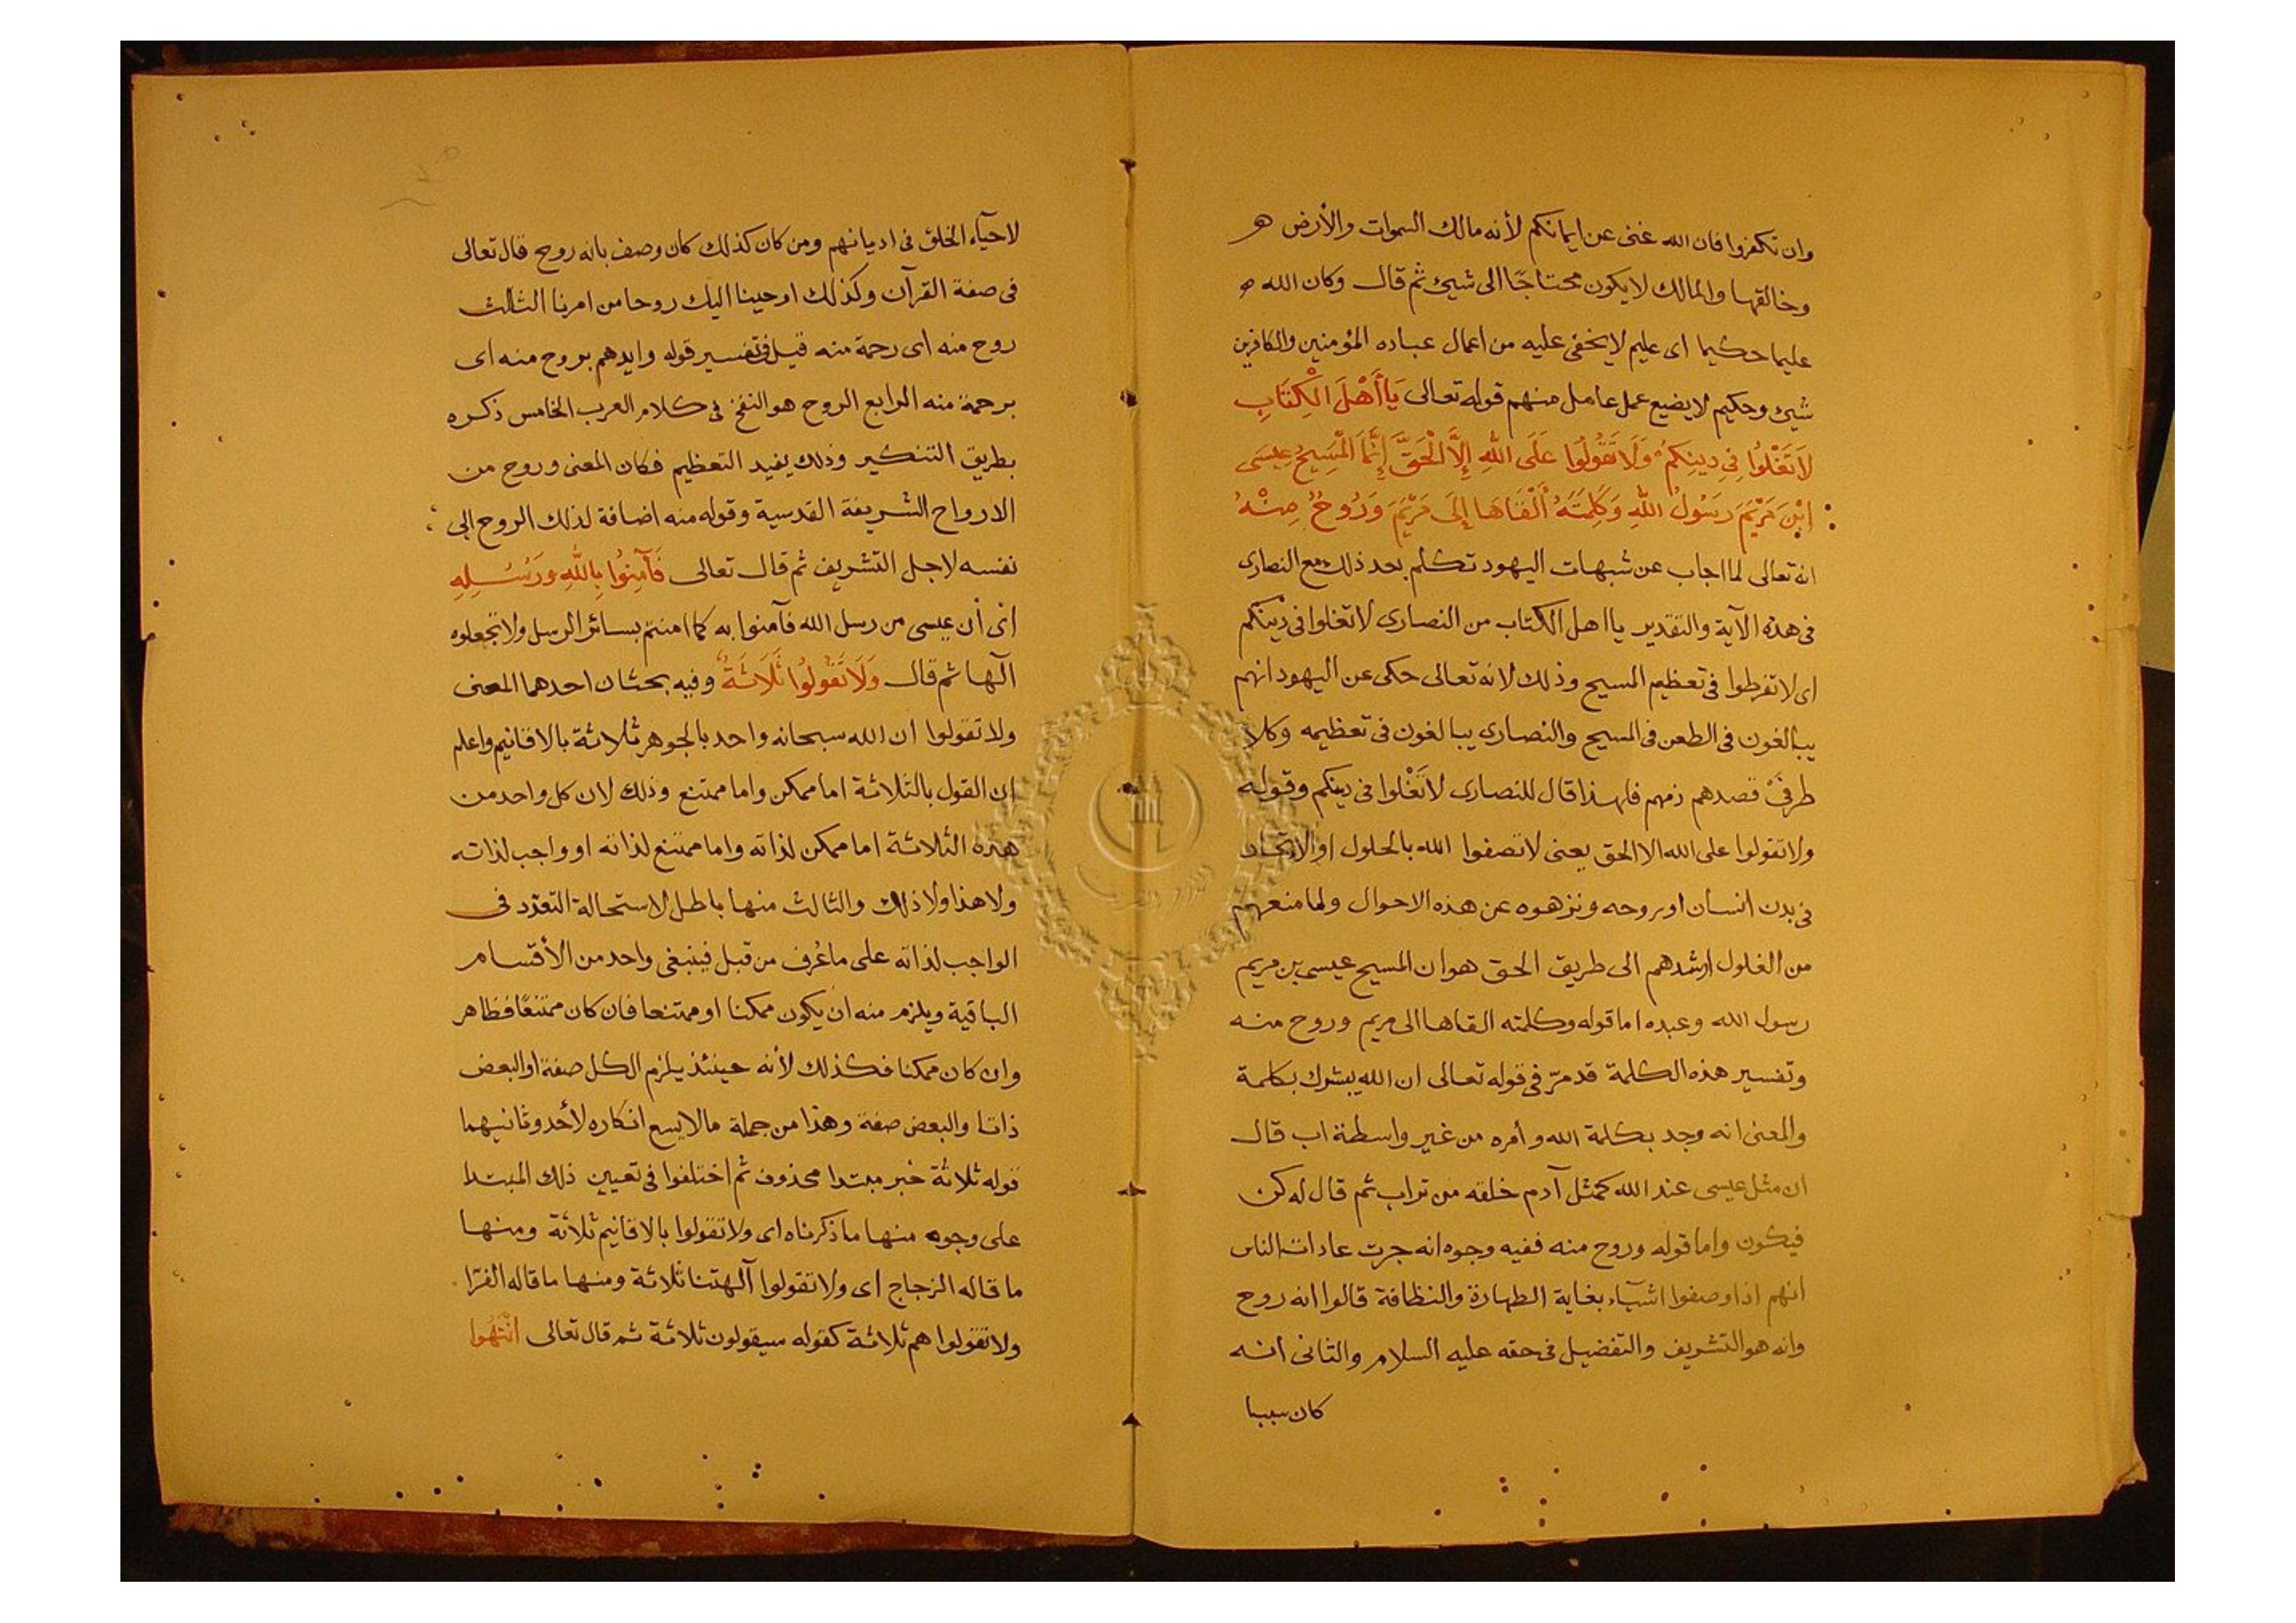 وان تكفروا فان الله غنى عن ايمانكم لأنه مالك السموات والأرض هو
وخالقها والمالك لا يكون محتاجًا الى شيئ ثم قال وكان الله
عليما حكيما اى عليم لا يخفى عليه من اعمال عباده المؤمنين والكافرين
شيئ وحكيم لا يضيع عمل عامل منهم قوله تعالى يَاأَهْلَ الْكِتَابِ
لَا تَغْلُوا فِي دِينِكُمْ وَلَا تَقُولُوا عَلَى اللهِ إِلَّا الْحَقَّ إِنَّمَا الْمَسِيحُ عِيسَى
ابْنُ مَرْيَمَ رَسُولُ اللهِ وَكَلِمَتُهُ أَلْقَاهَا إِلَى مَرْيَمَ وَرُوحٌ مِنْهُ
انه تعالى لما اجاب عن شبهات اليهود تكلم بعد ذلك مع النصارى
فى هذه الآية والتقدير يا اهل الكتاب من النصارى لا تغلوا فى دينكم
اى لا تفرطوا فى تعظيم المسيح وذلك لانه تعالى حكى عن اليهود انهم
يبالغون فى الطعن فى المسيح والنصارى يبالغون فى تعظيمه وكلا
طرفَىْ قصدهم ذمهم فلهذا قال للنصارى لا تَغْلوا فى دينكم وقوله
ولا تقولوا على الله الا الحق يعنى لا تصفوا الله بالحلول او الاتحاد
فى بدن انسان او روحه ونزهوه عن هذه الاحوال ولما منعهم
من الغلول ارشدهم الى طريق الحق هو ان المسيح عيسى بن مريم
رسول الله وعبده اما قوله وكلمته القاها الى مريم وروح منه
وتفسير هذه الكلمة قد مرّ فى قوله تعالى ان الله يبشرك بكلمة
والمعنى انه وجد بكلمة الله وأمره من غير واسطة اب قال
ان مثل عيسى عند الله كمثل آدم خلقه من تراب ثم قال له كن
فيكون واما قوله وروح منه ففيه وجوه انه جرت عادات الناس
انهم اذا وصفوا اشيآء بغاية الطهارة والنظافة قالوا انه روح
وانه هو التشريف والتفضيل فى حقه عليه السلام والثانى انه
كان سببا
لاحيآء الخلق فى اديانهم ومن كان كذلك كان وصف بانه روح قال تعالى
فى صفة القرآن وكذلك اوحينا اليك روحا من امرنا الثالث
روح منه اى رحمة منه قيل فى تفسير قوله وايدهم بروح منه اى
برحمة منه الرابع الروح هو النفخ فى كلام العرب الخامس ذكره
بطريق التنكير وذلك يفيد التعظيم فكان المعنى وروح من
الارواح الشريفة القدسية وقوله منه اضافة لذلك الروح الى
نفسه لاجل التشريف ثم قال تعالى فَآمِنُوا بِاللهِ وَرُسُلِهِ
اى أن عيسى من رسل الله فآمنوا به كما امنتم بسائر الرسل ولا تجعلوه
الٓها ثم قال وَلَا تَقُولُوا ثَلَاثَةٌ وفيه بحثان احدهما المعنى
ولا تقولوا ان الله سبحانه واحد بالجوهر ثلاثة بالاقانيم واعلم
ان القول بالثلاثة اما ممكن واما ممتنع وذلك لان كل واحد من
هذه الثلاثة اما ممكن لذاته واما ممتنع لذاته او واجب لذاته
ولا هذا ولا ذلك والثالث منها باطل لاستحالة التعدّد فى
الواجب لذاته على ما عُرف من قبل فينبغى واحد من الأقسام
الباقية ويلزم منه ان يكون ممكنا او ممتنعا فان كان ممتنعًا فظاهر
وان كان ممكنا فكذلك لأنه حينئذ يلزم الكل صفة او البعض
ذاتا والبعض صفة وهذا من جملة ما لا يسع انكاره لأحد وثانيهما
قوله ثلاثة خبر مبتدا محذوف ثم اختلفوا فى تعيين ذلك المبتدا
على وجوه منها ما ذكرناه اى ولا تقولوا بالاقانيم ثلاثة ومنها
ما قاله الزجاج اى ولا تقولوا آلهتنا ثلاثة ومنها ما قاله الفرّا
ولا تقولوا هم ثلاثة كقوله سيقولون ثلاثة ثم قال تعالى انْتَهُوا